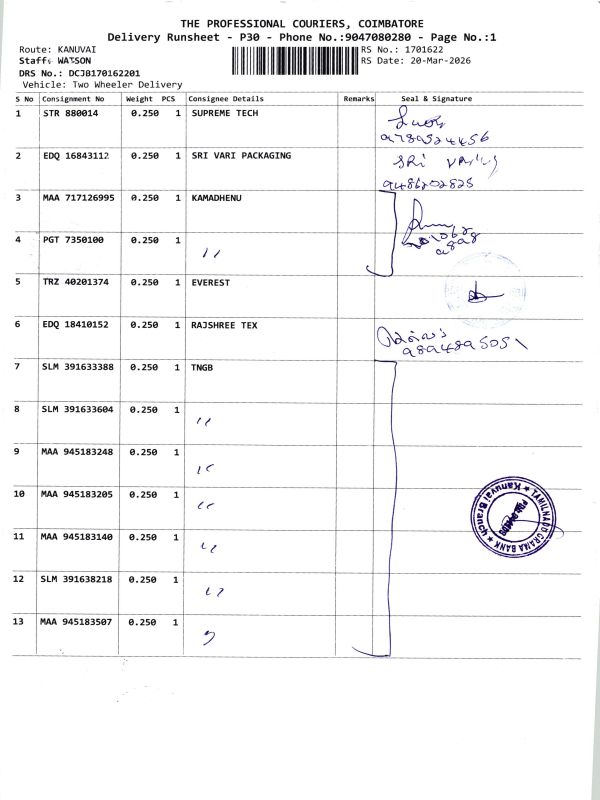 THE PROFESSIONAL COURIERS, COIMBATORE
Delivery Runsheet - P30 - Phone No.:9047080280 - Page No.:1
Route: KANUVAI
RS No.: 1701622
Staff: WATSON
RS Date: 20-Mar-2026
DRS No.: DCJB170162201
Vehicle: Two Wheeler Delivery
S No Consignment No Weight PCS Consignee Details Remarks Seal & Signature
1 STR 880014 0.250 1 SUPREME TECH
2 EDQ 16843112 0.250 1 SRI VARI PACKAGING SRI
9486202825
3 MAA 717126995 0.250 1 KAMADHENU
4 PGT 7350100 0.250 1 "
5 TRZ 40201374 0.250 1 EVEREST
6 EDQ 18410152 0.250 1 RAJSHREE TEX
9894895051
7 SLM 391633388 0.250 1 TNGB
8 SLM 391633604 0.250 1 "
9 MAA 945183248 0.250 1 "
10 MAA 945183205 0.250 1 "
11 MAA 945183140 0.250 1 "
12 SLM 391638218 0.250 1 "
13 MAA 945183507 0.250 1 "
TAMILNADU GRAMA BANK
Kanuvai Branch